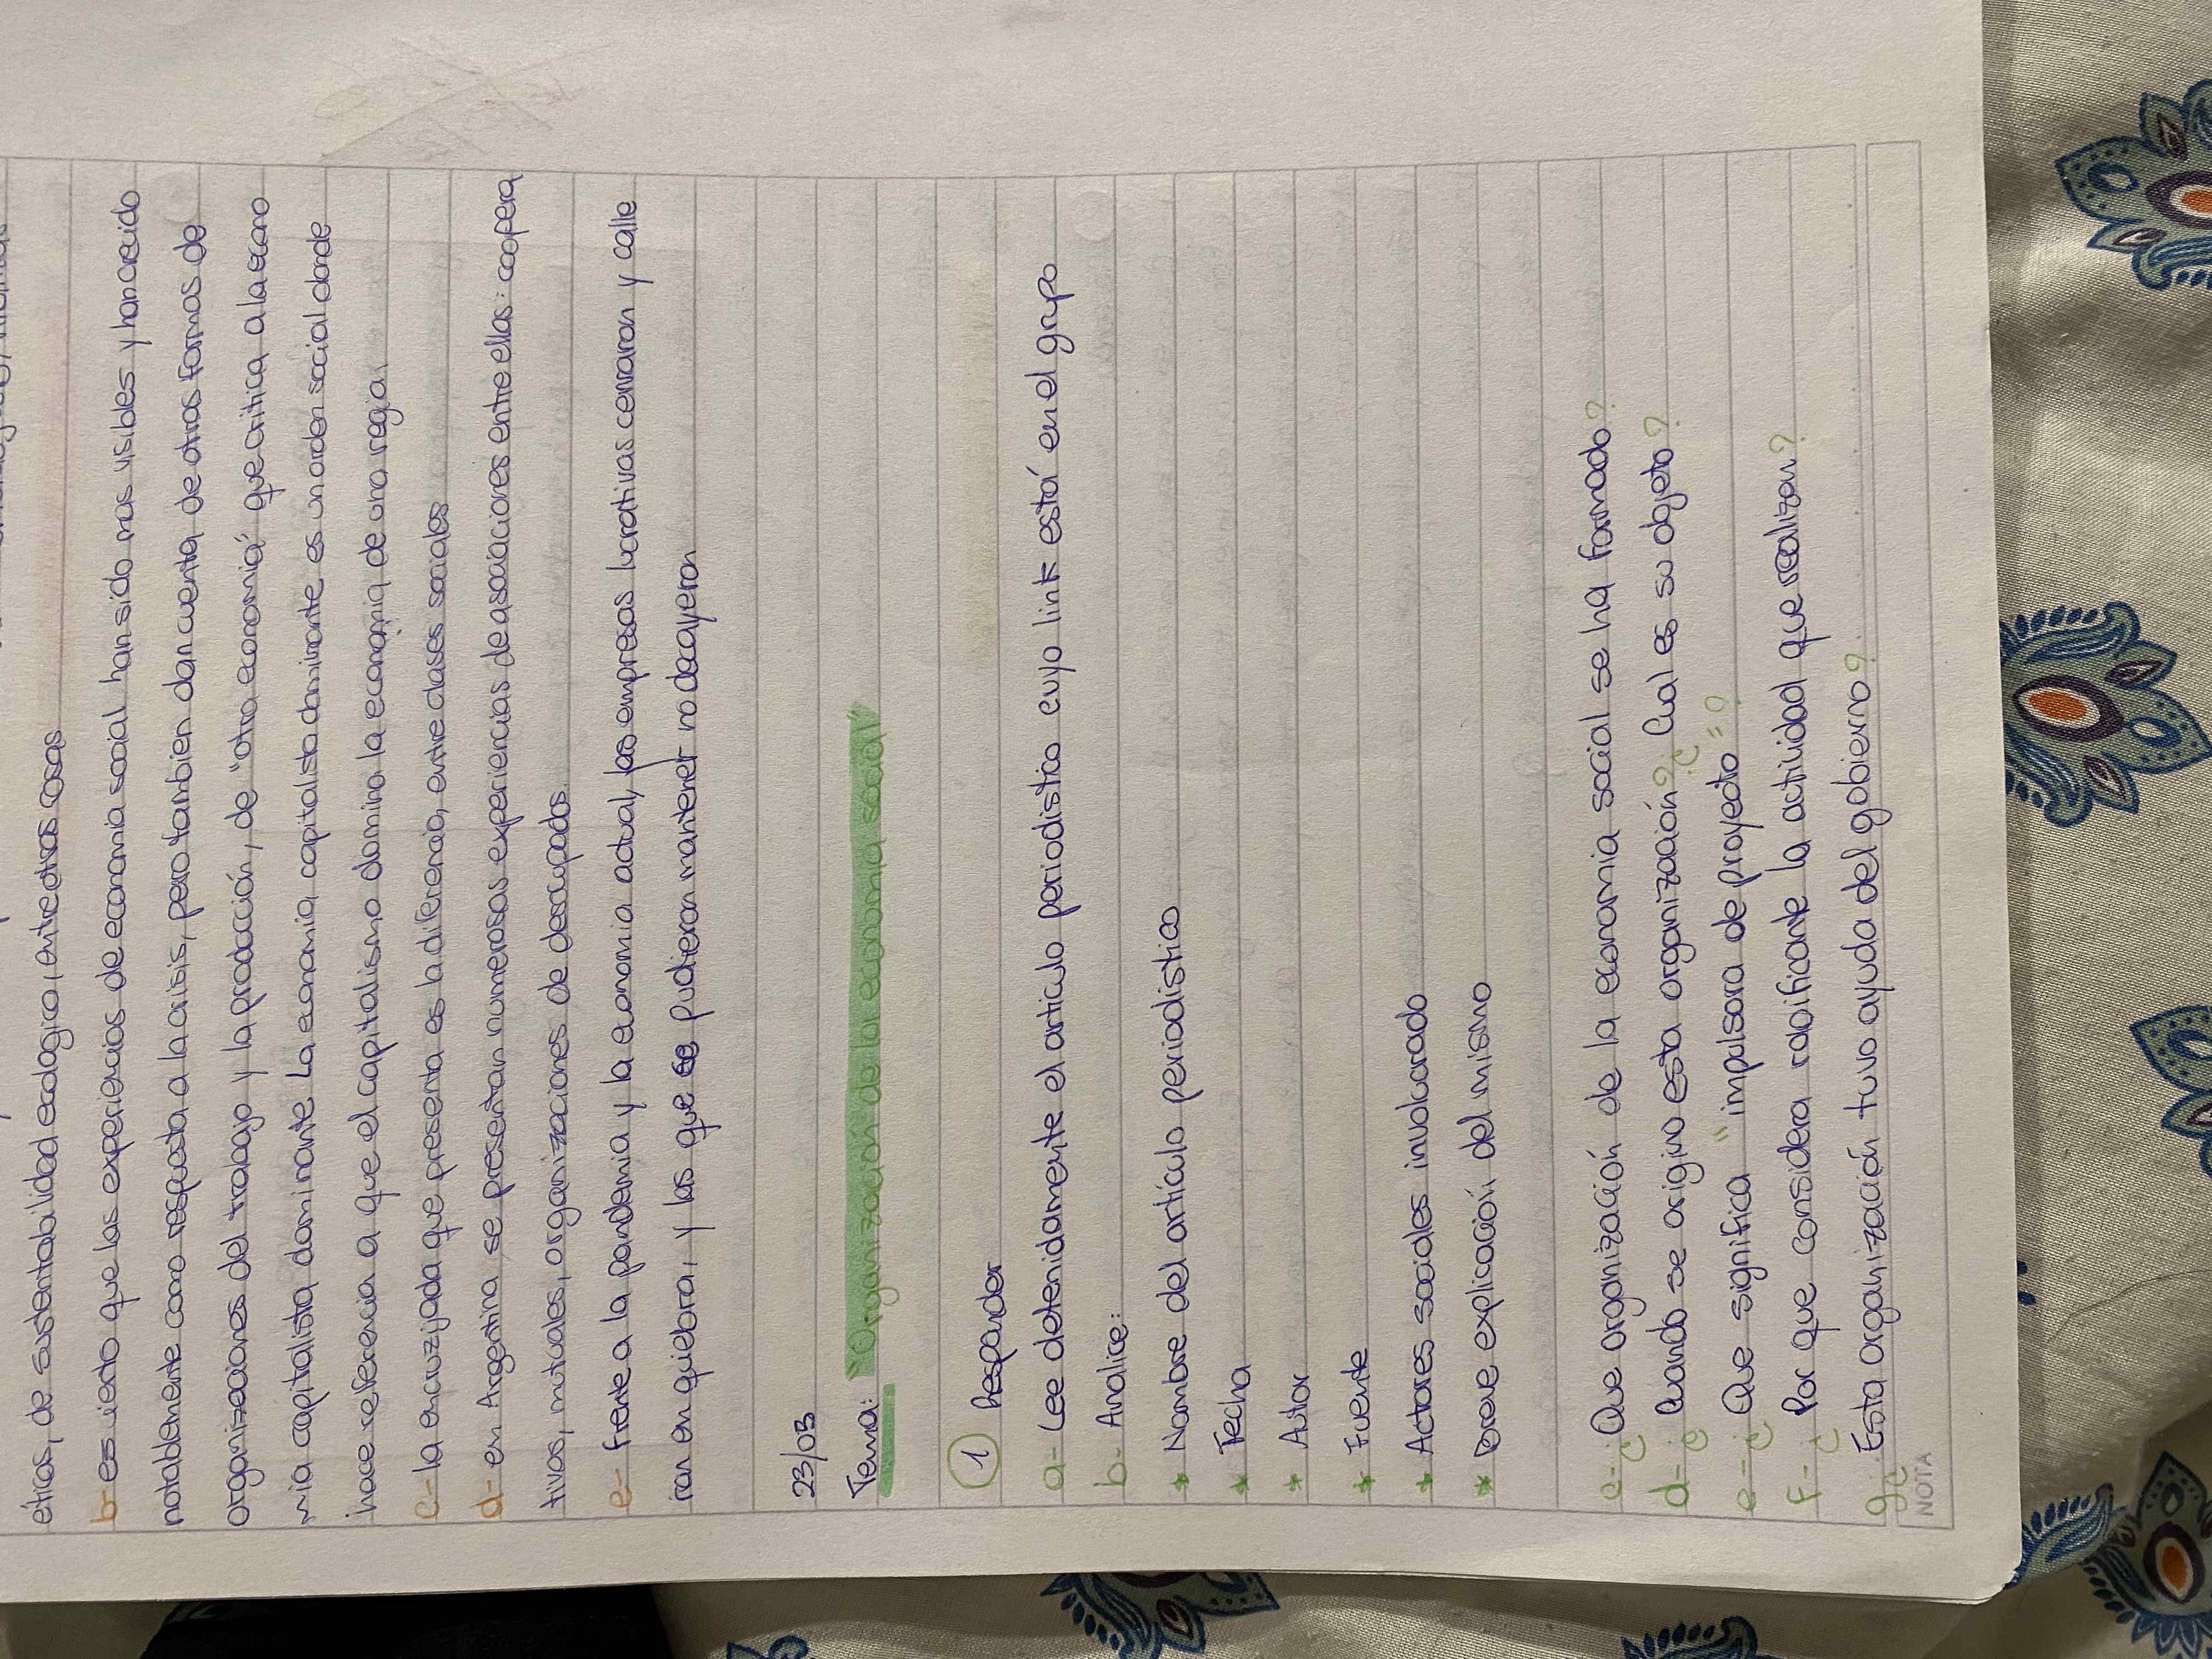 éticos, de sustentabilidad ecologico, entre otras cosas
b- es cierto que las experiencias de economia social han sido mas visibles y han crecido
notablemente como respuesta a la crisis, pero tambien dan cuenta de otras formas de
organizaciones del trabajo y la producción, de "otra economía" que critica a la econo
mia capitalista dominante. La economia capitalista dominante es un orden social donde
hace referencia a que el capitalismo domina la economia de una region
c- la encruzijada que presenta es la diferencia, entre clases sociales
d- en Argentina se presentan numerosas experiencias de asociaciones entre ellas: coopera
tivas, mutuales, organizaciones de desocupados.
e- frente a la pandemia y la economia actual, las empresas lucrativas cerraron y calle
ron en quiebra, y las que se pudieron mantener no decayeron
23/03
Tema: "Organización de la economia social"
1 Responder
a- Lee detenidamente el artículo periodistico cuyo link está en el grupo
b- Analice:
* Nombre del artículo periodistico
* Fecha
* Autor
* Fuente
* Actores sociales involucrado
* Breve explicación del mismo
c- ¿Que organización de la economia social se ha formado?
d- ¿Cuando se origino esta organización? ¿Cual es su objeto?
e- ¿Que significa "impulsora de proyecto"?
F- ¿Por que considera radificante la actividad que realizan?
g- ¿Esta organización tuvo ayuda del gobierno?
NOTA